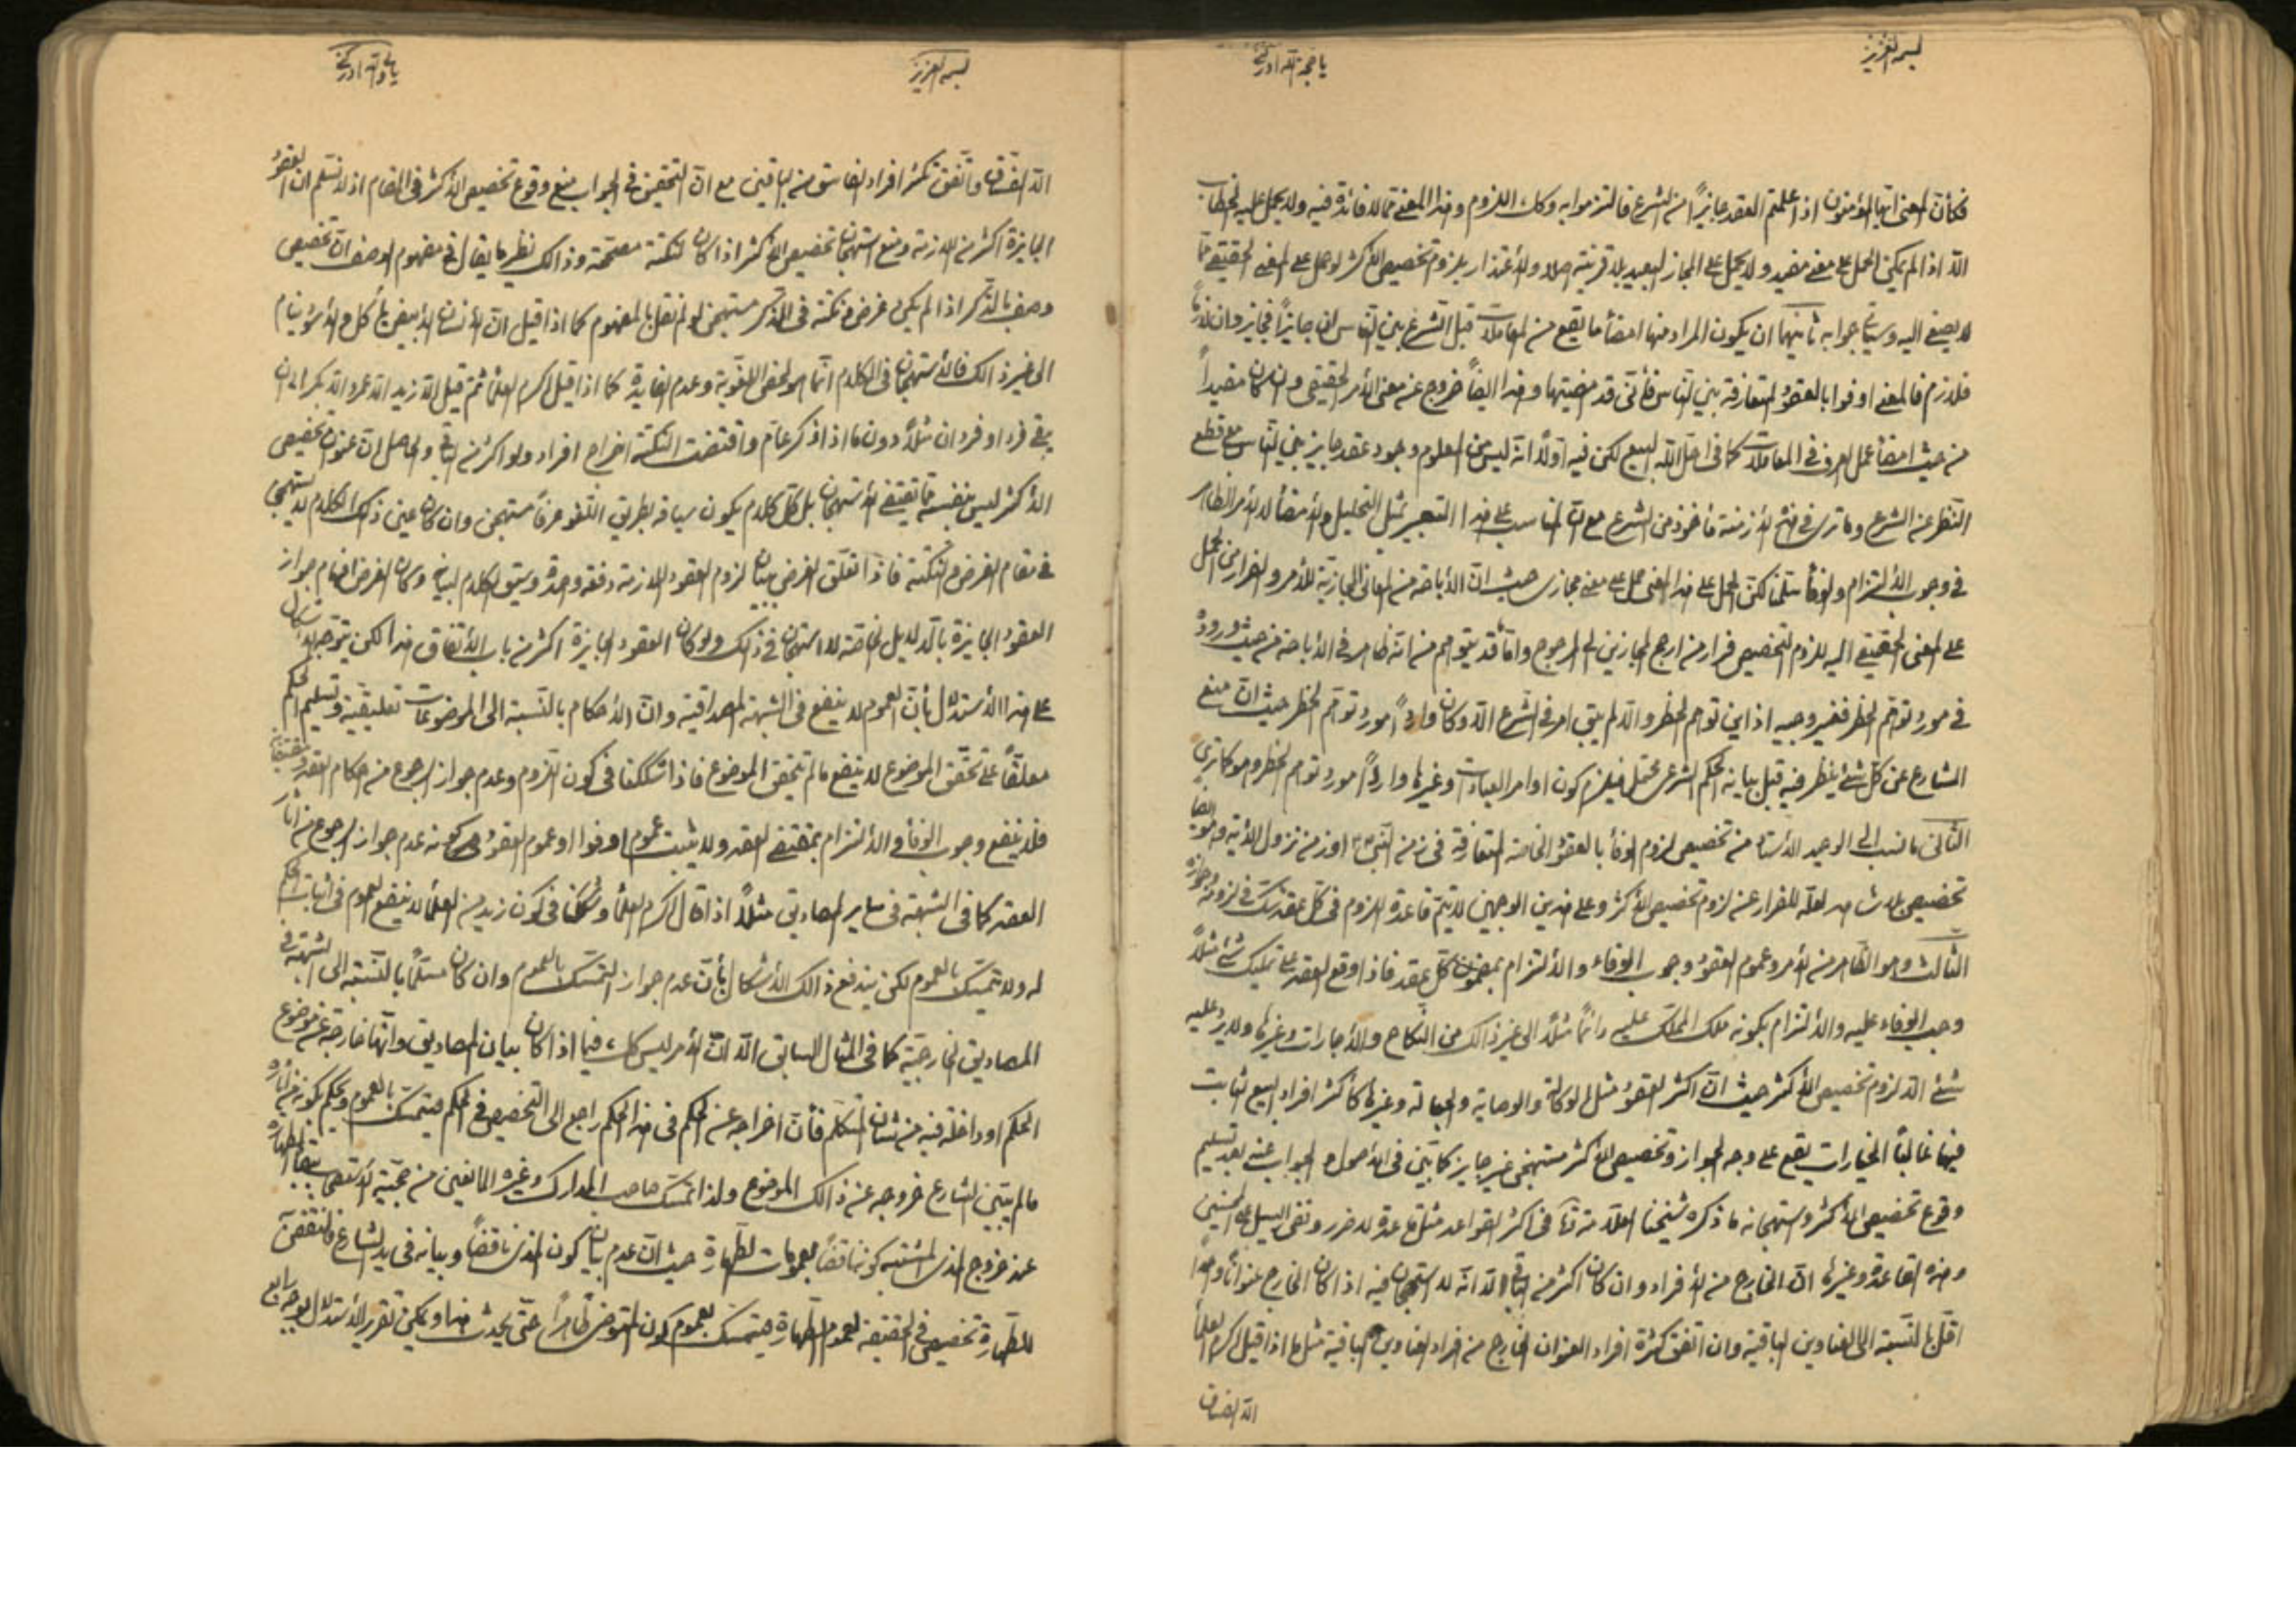 بسمه العزيز
يا حجة الله ادركني
فكأن المعنى ايها المؤمنون اذا علمتم العقد جايزاً من الشرع فالتزموا به وكك اللزوم وهذا المعنى مما لا فائدة فيه ولا يحمل عليه الخطاب
الا اذا لم يمكن الحمل على معنى مفيد ولا يحمل على المجاز البعيد بلا قرينة اصلا والاعتذار بلزوم تخصيص الاكثر لو حمل على المعنى الحقيقي مما
لا يصغى اليه وسيأتي جوابه ثانيهما ان يكون المراد منها امضأ ما يقع من المعاملات قبل الشرع بين الناس ان جايزاً فجايز وان لازماً
فلازم فالمعنى اوفوا بالعقود المتعارفة بين الناس فأني قد امضيتها وهذا ايضاً خروج عن معنى الأمر الحقيقي وان كان مفيداً
من حيث امضأ عمل العرف في المعاملات كما في احل الله البيع لكن فيه اولاً انه ليس من المعلوم وجود عقد جايز بين الناس مع قطع
النظر عن الشرع وما ترى في هذه الازمنة مأخوذ من الشرع مع ان المناسب على هذا التعبير بمثل التحليل والامضأ لا الأمر الظاهر
في وجوب الألتزام ولو سلمنا لكن الحمل على هذا المعنى حمل على معنى مجازى حيث ان الأباحة من المعاني المجازية للأمر والفرار من الحمل
على المعنى الحقيقي اليه للزوم التخصيص فرار من ارجح المجازين الى المرجوح واما ما قد يتوهم من انه ظاهر في الأباحة من حيث وروده
في مورد توهم الحظر فغير وجيه اذ اين توهم الحظر والا لم يبق امر في الشرع الا وكان وارداً مورد توهم الحظر حيث ان منع
الشارع عن كل شئ ينظر فيه قبل بيانه الحكم الشرعى محتمل فيلزم كون اوامر العبادات وغيرها وارداً مورد توهم الحظر وهو كما ترى
الثاني ما نسب الى الوحيد الأستاد من تخصيص لزوم الوفأ بالعقود الخاصة المتعارفة في زمن النبي ص او زمن نزول الآية وهو ايضاً
تخصيص بلا شاهد لعله للفرار عن لزوم تخصيص الاكثر وعلى هذين الوجهين لا يتم قاعدة اللزوم في كل عقد شك في لزومه وجوازه
الثالث وهو الظاهر من الأمر وعموم العقود وجوب الوفاء والألتزام بمضمون كل عقد فاذا وقع العقد على تمليك شئ مثلاً
وجب الوفاء عليه والألتزام بكونه ملك المملك عليه دائماً مثلاً الى غير ذالك من النكاح والأجارات وغيرها ولا يرد عليه
شئ الا لزوم تخصيص الأكثر حيث ان اكثر العقود مثل الوكالة والوصاية والجعالة وغيرها كأكثر افراد البيع الثابت
فيها غالباً الخيارات يقع على وجه الجواز وتخصيص الاكثر مستهجن غير جايز كما بين في الأصول والجواب عنه بعد تسليم
وقوع تخصيص الاكثر واستهجانه ما ذكره شيخنا العلامة في اكثر القواعد مثل قاعدة لا ضرر ونفي السبيل على المحسنين
وهذه القاعدة وغيرها ان الخارج من الأفراد وان كان اكثر من الباقي الا انه لا استهجان فيه اذا كان الخارج عنواناً واحداً
اقل بالنسبة الى العناوين الباقية وان اتفق كثرة افراد العنوان الخارج من افراد العناوين الباقية مثل ما اذا قيل اكرم العلمأ
الا الفساق
بسمه العزيز
يا حجة الله ادركني
الا الفساق واتفق تكثر افراد الفاسق من الباقين مع ان التحقيق في الجواب منع وقوع تخصيص الأكثر في المقام اذ لا نسلم ان العقود
الجايزة اكثر من اللازمة ومنع استهجان تخصيص الأكثر اذا كان لنكتة مصححة وذالك نظير ما يقال في مفهوم الوصف ان تخصيص
وصف بالذكر اذا لم يكن غرض ونكتة في الذكر مستهجن لو لم نقل بالمفهوم كما اذا قيل ان الانسان الأبيض يأكل والأسود ينام
الى غير ذالك فالأستهجان في الكلام انما هو لمحض اللغوية وعدم الفايدة كما اذا قيل اكرم العلمأ ثم قيل الا زيد الا عمرو الا بكر الى ان
بقي فرد او فردان مثلاً دون ما اذا ذكر عام واقتضت النكتة اخراج افراد ولو اكثر من الباقي والحاصل ان عنوان تخصيص
الأكثر ليس بنفسه مما يقتضي الأستهجان بل كل كلام يكون سياقه بطريق اللغو عرفاً مستهجن وان كان عين ذلك الكلام لا يستهجن
في مقام الغرض والنكتة فاذا تعلق الغرض ببيان لزوم العقود اللازمة دفعة واحدة وسيق الكلام لبيانه وكان الغرض افهام جواز
العقود الجايزة بالدليل الخاصة لا استهجان في ذلك ولو كان العقود الجايزة اكثر من باب الأتفاق هذا لكن يتوجه الأشكال
على هذا الأستدلال بأن العموم لا ينفع في الشبهة المصداقية وان الأحكام بالنسبة الى الموضوعات تعليقية وتسليم الحكم
معلقاً على تحقق الموضوع لا ينفع ما لم يتحقق الموضوع فاذا شككنا في كون اللزوم وعدم جواز الرجوع من احكام العقد ومقتضياته
فلا ينفع وجوب الوفأ والألتزام بمقتضى العقد ولا يثبت عموم اوفوا او عموم العقود كونه عدم جواز الرجوع من آثار
العقد كما في الشبهة في ساير المصاديق مثلاً اذا قال اكرم العلمأ وشككنا في كون زيد من العلمأ لا ينفع العموم في اثبات الحكم
له ولا يتمسك بالعموم لكن يندفع ذالك الأشكال بأن عدم جواز التمسك بالعموم وان كان مسلماً بالنسبة الى الشبهة في
المصاديق الخارجية كما في المثال السابق الا ان الأمر ليس كك فيما اذا كان بيان المصاديق وانها خارجة عن موضوع
الحكم او داخلة فيه من شان المتكلم فأن اخراجه عن الحكم في هذا الحكم راجع الى التخصيص في الحكم فيتمسك بالعموم ويحكم بكونه من افراده
ما لم يتبين الشارع خروجه عن ذالك الموضوع ولذا تمسك صاحب المدارك وغيره المانعين من حجية الأستصحاب ببقأ الطهارة
عند خروج المذى المشتبه كونه ناقضاً بعمومات الطهارة حيث ان عدم بيان كون المذى ناقضاً وبيانه في يد الشارع
للطهارة تخصيص في الحقيقة لعموم الطهارة فيتمسك بعموم كون المتوضى طاهراً حتى يحدث هذا ويمكن تقرير الأستدلال بوجه رابع